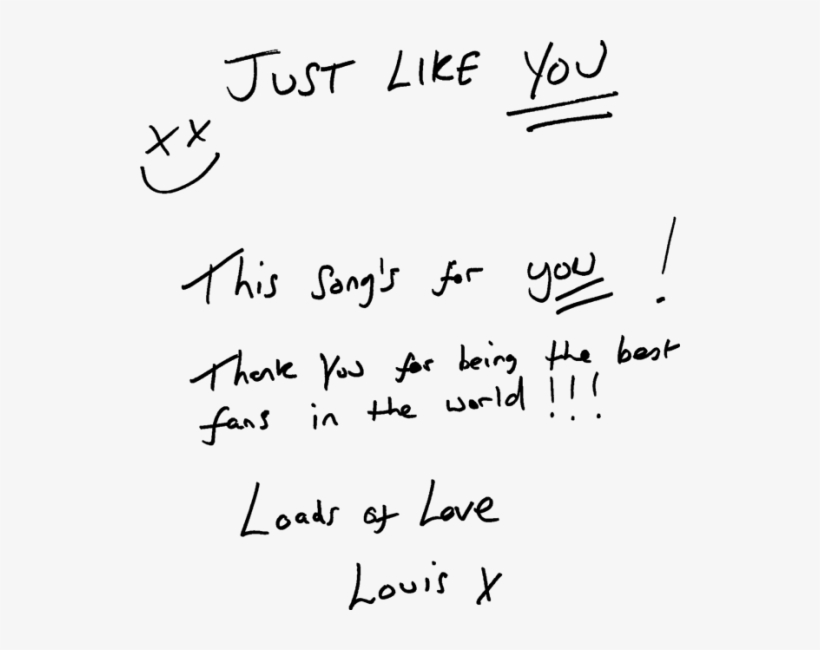 JUST LIKE YOU
XX
This song's for you !
Thank You for being the best
fans in the world !!!
Loads of Love
Louis X